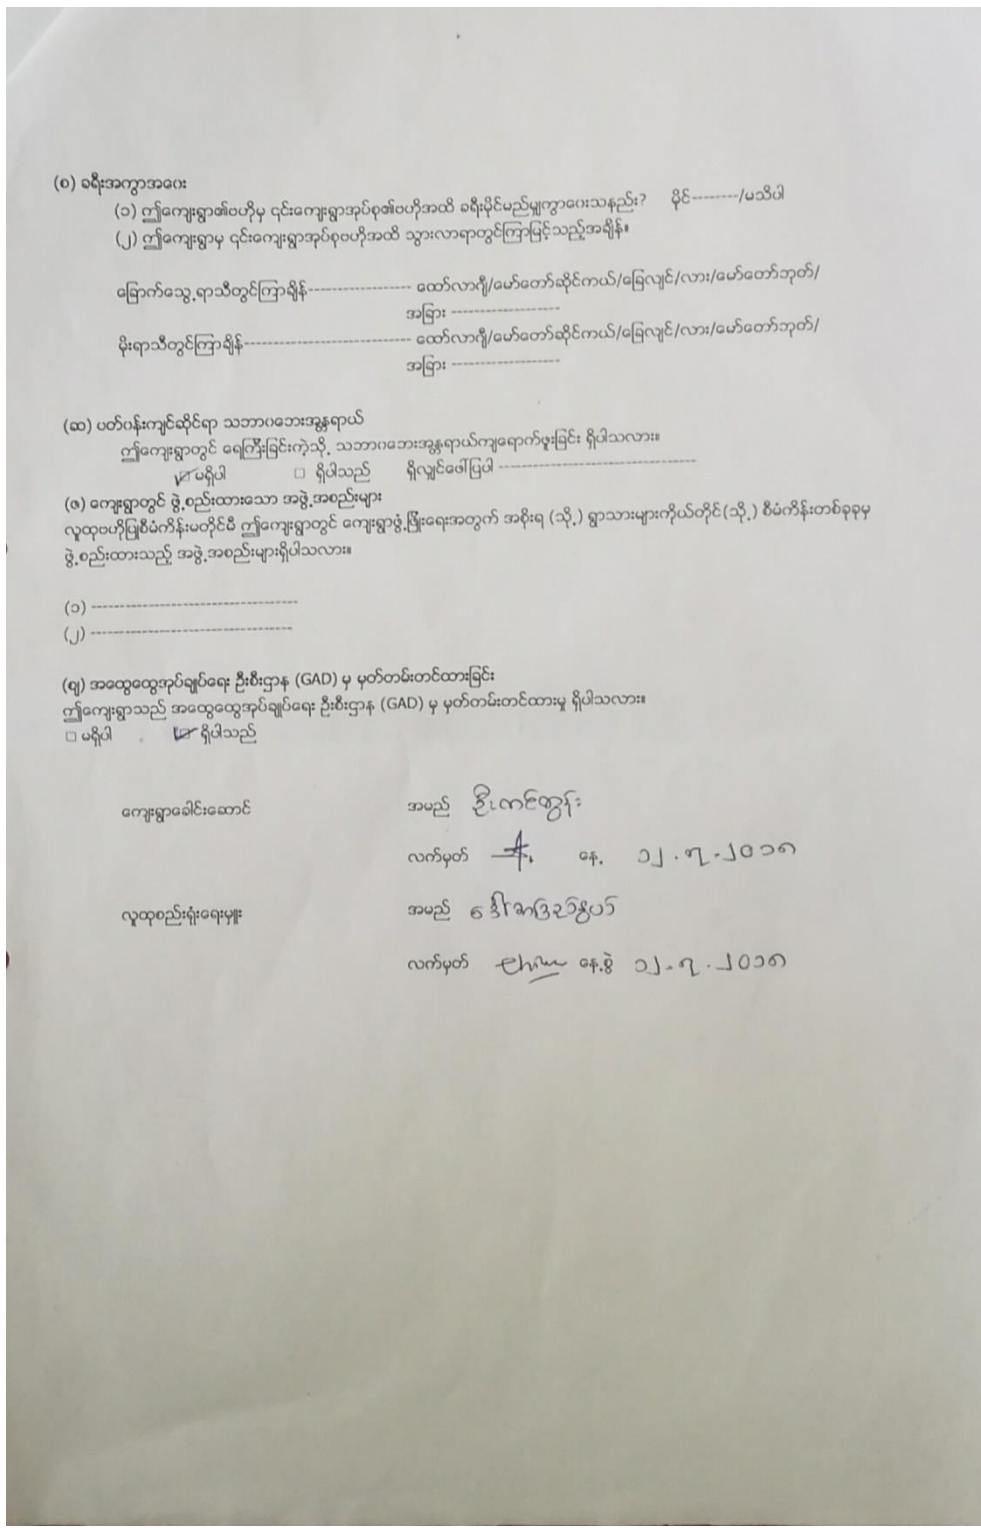 (စ) ခရီးအကွာအဝေး
(၁) ဤကျေးရွာ၏ဗဟိုမှ ၎င်းကျေးရွာအုပ်စု၏ဗဟိုအထိ ခရီးမိုင်မည်မျှကွာဝေးသနည်း? မိုင်--------/မသိပါ
(၂) ဤကျေးရွာမှ ၎င်းကျေးရွာအုပ်စုဗဟိုအထိ သွားလာရာတွင်ကြာမြင့်သည့်အချိန်။
ခြောက်သွေ့ရာသီတွင်ကြာချိန်------------------ ထော်လာဂျီ/မော်တော်ဆိုင်ကယ်/ခြေလျင်/လား/မော်တော်ဘုတ်/
အခြား -------------------
မိုးရာသီတွင်ကြာချိန်----------------------------- ထော်လာဂျီ/မော်တော်ဆိုင်ကယ်/ခြေလျင်/လား/မော်တော်ဘုတ်/
အခြား -------------------
(ဆ) ပတ်ဝန်းကျင်ဆိုင်ရာ သဘာဝဘေးအန္တရာယ်
ဤကျေးရွာတွင် ရေကြီးခြင်းကဲ့သို့ သဘာဝဘေးအန္တရာယ်ကျရောက်ဖူးခြင်း ရှိပါသလား။
☑ မရှိပါ □ ရှိပါသည် ရှိလျှင်ဖော်ပြပါ ----------------------------------
(ဇ) ကျေးရွာတွင် ဖွဲ့စည်းထားသော အဖွဲ့အစည်းများ
လူထုဗဟိုပြုစီမံကိန်းမတိုင်မီ ဤကျေးရွာတွင် ကျေးရွာဖွံ့ဖြိုးရေးအတွက် အစိုးရ (သို့) ရွာသားများကိုယ်တိုင်(သို့) စီမံကိန်းတစ်ခုခုမှ
ဖွဲ့စည်းထားသည့် အဖွဲ့အစည်းများရှိပါသလား။
(၁) ------------------------------------
(၂) -----------------------------------
(ဈ) အထွေထွေအုပ်ချုပ်ရေး ဦးစီးဌာန (GAD) မှ မှတ်တမ်းတင်ထားခြင်း
ဤကျေးရွာသည် အထွေထွေအုပ်ချုပ်ရေး ဦးစီးဌာန (GAD) မှ မှတ်တမ်းတင်ထားမှု ရှိပါသလား။
□ မရှိပါ ☑ ရှိပါသည်
ကျေးရွာခေါင်းဆောင် အမည် ဦးတင်ထွန်း
လက်မှတ် နေ့ ၁၂.၇.၂၀၁၈
လူထုစည်းရုံးရေးမှူး အမည် ဒေါ်
လက်မှတ် နေ့စွဲ ၁၂.၇.၂၀၁၈